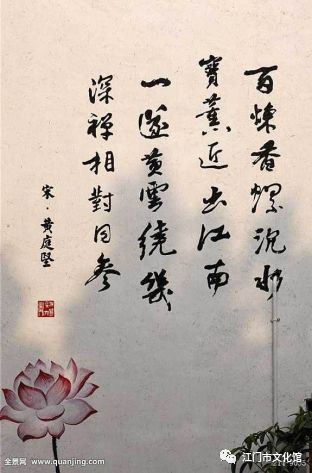 百煉香螺沉水
寶薰近出江南
一穟黃雲繞幾
深禪相對同參
宋·黃庭堅
全景网 www.quanjing.com
江门市文化馆